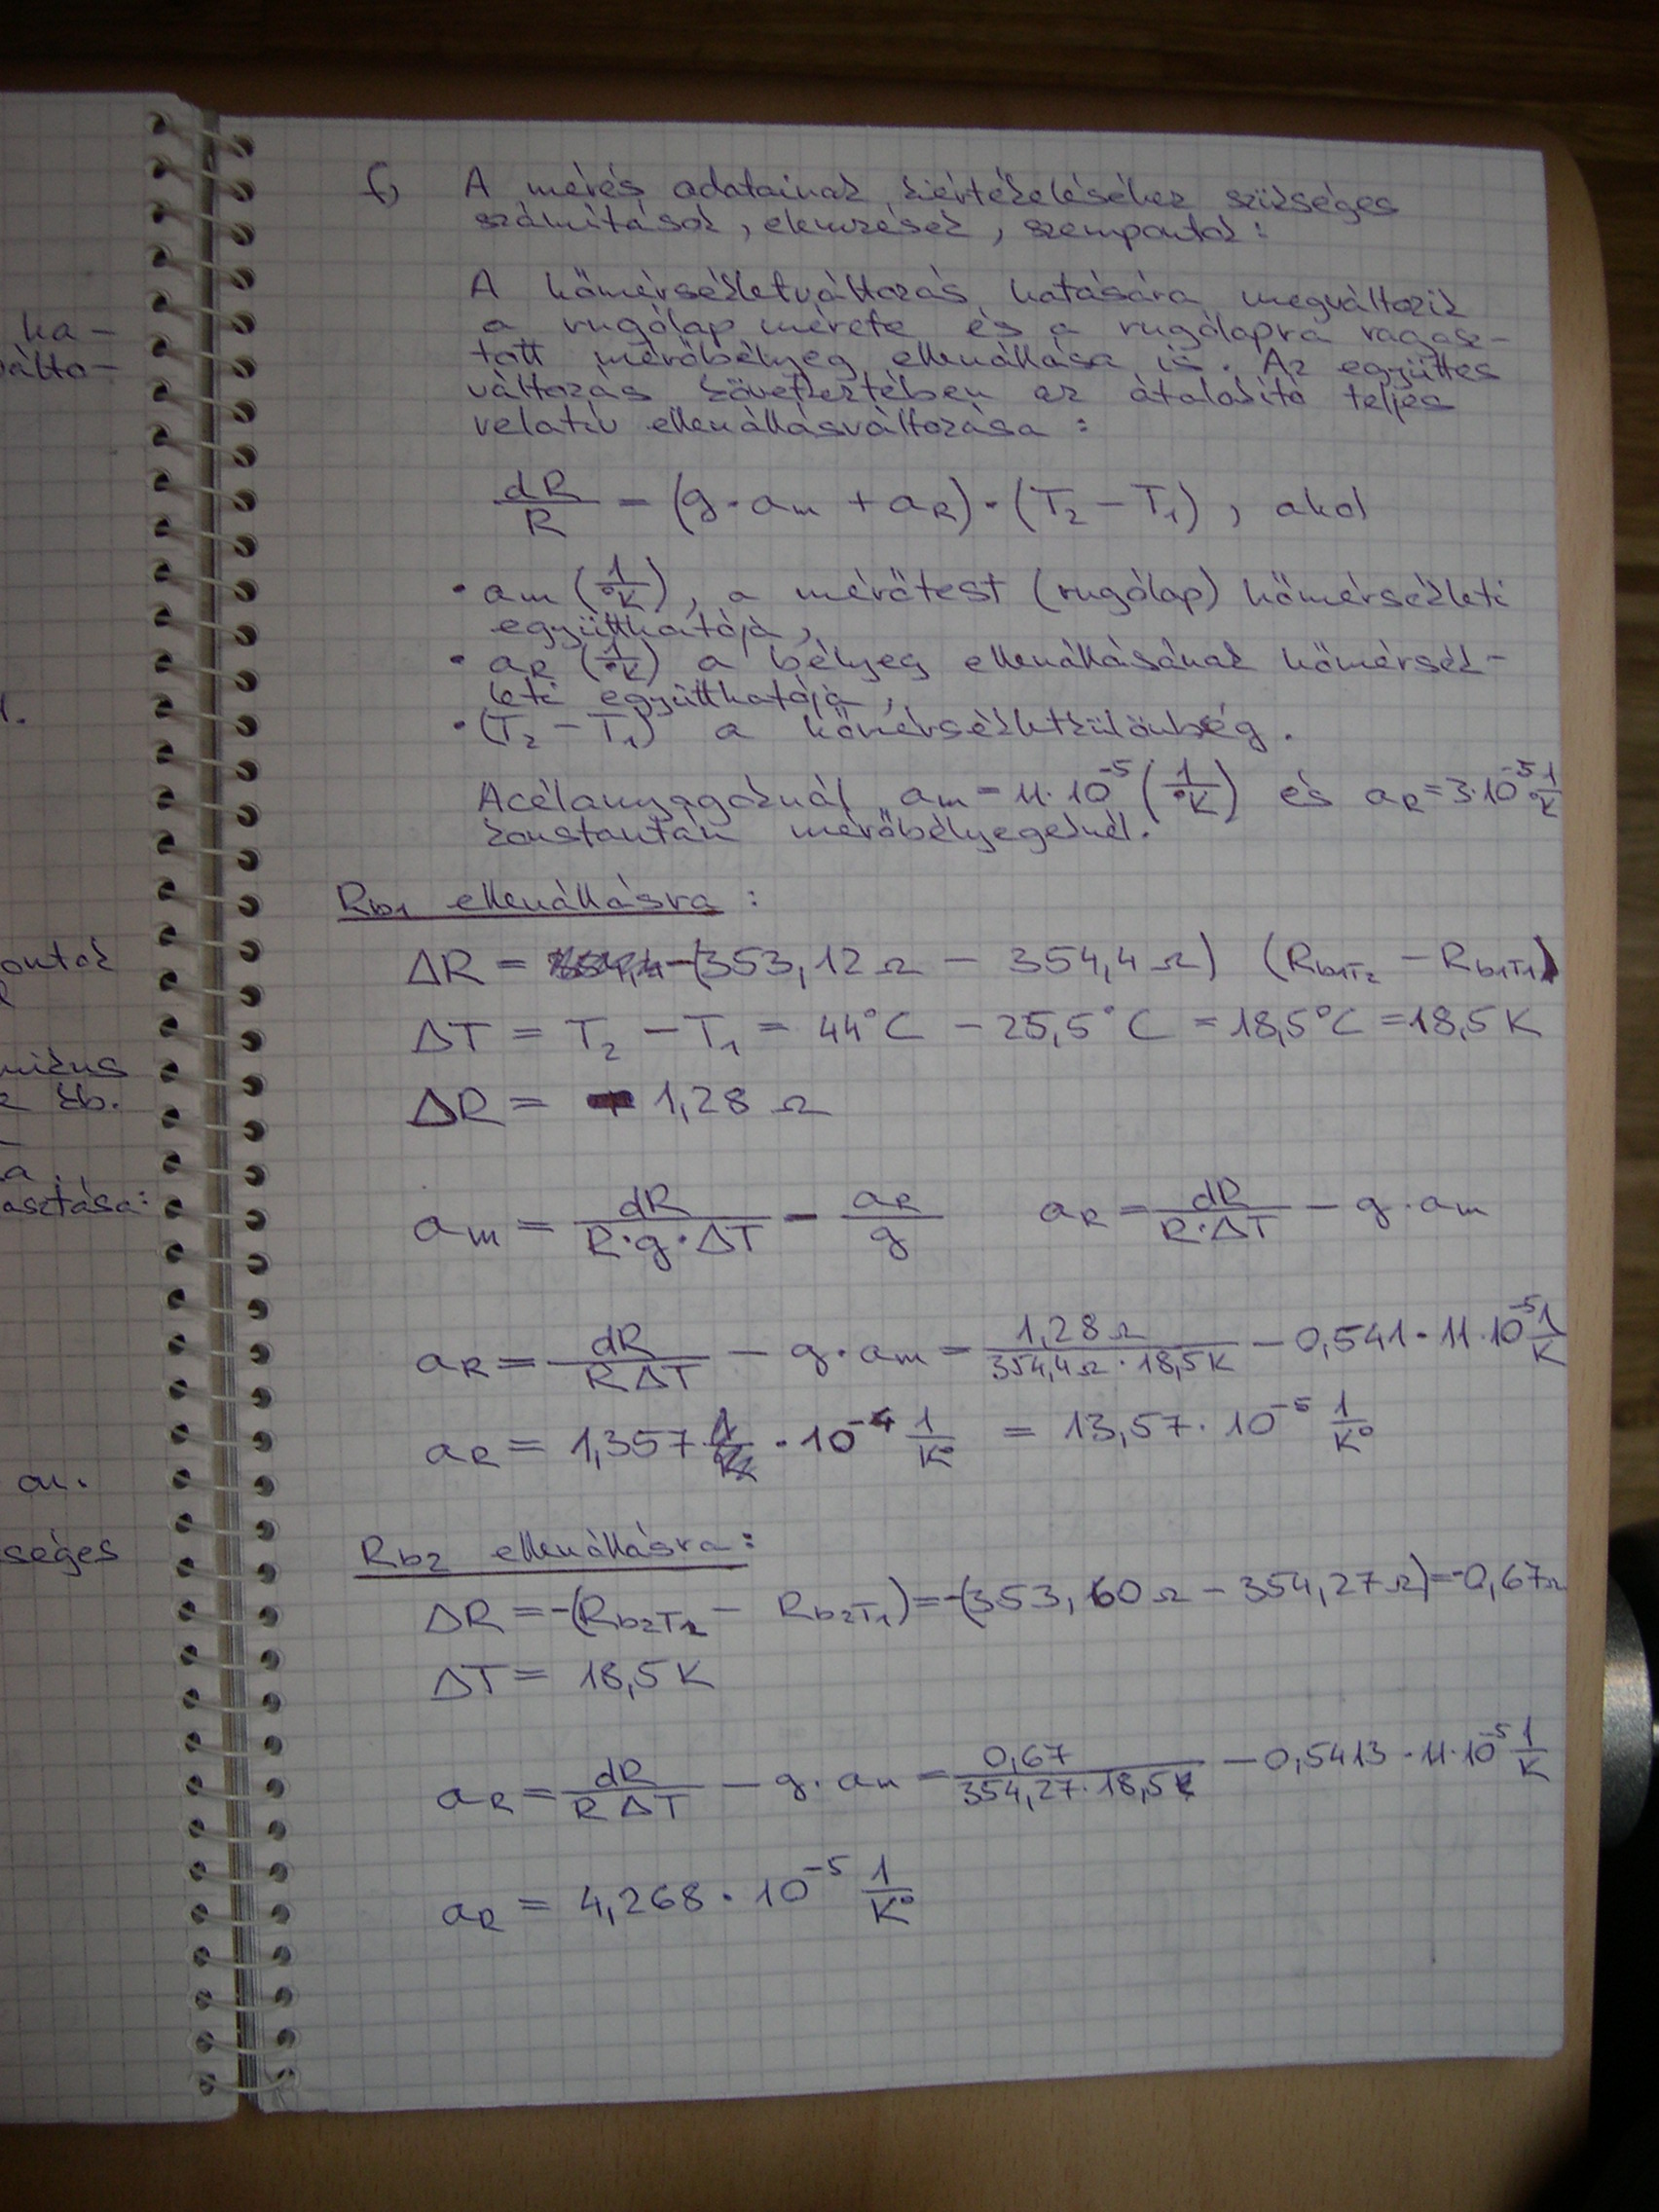 ha-
válto-
1.
ontok
mikus
z kb.
a
asztása:
an.
séges
f, A mérés adatainak kiértékeléséhez szükséges
számítások, elemzések, szempontok:
A hőmérsékletváltozás hatására megváltozik
a rugólap mérete és a rugólapra ragasz-
tott mérőbélyeg ellenállása is. Az együttes
változás következtében az átalakító teljes
relatív ellenállásváltozása:
dR/R = (g·am + aR)·(T2 − T1), ahol
• am (1/°K), a mérőtest (rugólap) hőmérsékleti
együtthatója,
• aR (1/°K) a bélyeg ellenállásának hőmérsék-
leti együtthatója,
• (T2 − T1) a hőmérsékletkülönbség.
Acélanyagoknál am = 11·10^-5 (1/°K) és aR = 3·10^-5 1/°K
konstantán mérőbélyegeknél.
Rb1 ellenállásra:
ΔR = −(353,12Ω − 354,4Ω) (Rb1T2 − Rb1T1)
ΔT = T2 − T1 = 44°C − 25,5°C = 18,5°C = 18,5K
ΔR = 1,28Ω
am = dR/(R·g·ΔT) − aR/g aR = dR/(R·ΔT) − g·am
aR = dR/(RΔT) − g·am = 1,28Ω/(354,4Ω·18,5K) − 0,541·11·10^-5 1/K
aR = 1,357·10^-4 1/K° = 13,57·10^-5 1/K°
Rb2 ellenállásra:
ΔR = −(Rb2T2 − Rb2T1) = −(353,60Ω − 354,27Ω) = −0,67Ω
ΔT = 18,5K
aR = dR/(RΔT) − g·am = 0,67/(354,27·18,5K) − 0,5413·11·10^-5 1/K
aR = 4,268·10^-5 1/K°